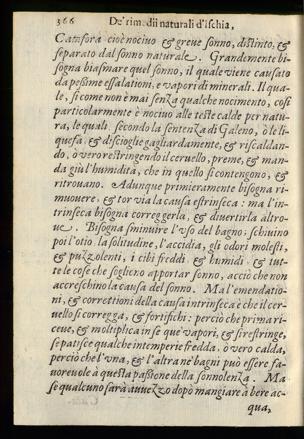 366 De' rim. dii naturali d'Ischia,
Catafora cioè nociuo & greue sonno, distinto, &
separato dal sonno naturale. Grandemente bi-
sogna biasmare quel sonno, il quale viene causato
da pessime essalationi, e vapori di minerali. Il qua-
le, si come non è mai senza qualche nocimento, così
particolarmente è nociuo alle teste calde per natu-
ra, le quali, secondo la sentenza di Galeno, ò le li-
quefa, & discioglie gagliardamente, & riscaldan-
do, ò vero restringendo il ceruello, preme, & man-
da giu l'humidità, che in quello si contengono, &
ritrouano. Adunque primieramente bisogna ri-
muouere, & tor via la causa estrinseca: ma l'in-
trinseca bisogna correggerla, & diuertirla altro-
ue. Bisogna sminuire l'vso del bagno; schiuino
poi l'otio, la solitudine, l'accidia, gli odori molesti,
& puzzolenti, i cibi freddi, & humidi, & tut-
te le cose che sogliono apportar sonno, acciò che non
accreschino la causa del sonno. Ma l'emendatio-
ni, & correttioni della causa intrinseca è che il cer-
uello si corregga, & fortifichi: perciò che prima ri-
ceue, & moltiplica in se que vapori, & si restringe,
se patisce qualche intemperie fredda, ò vero calda,
perciò che l'vna, & l'altra ne' bagni può essere fa-
uoreuole à questa passione della sonnolenza. Ma
se qualcuno sarà auuezzo dopò mangiare à bere ac-
qua,